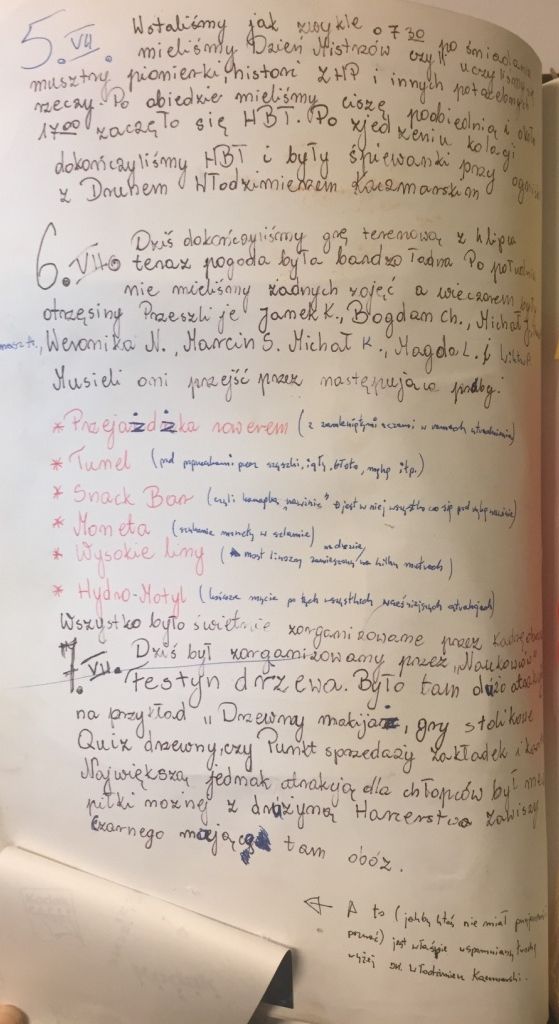 5. VII. Wstaliśmy jak zwykle o 7 30 po śniadaniu
mieliśmy Dzień Mistrzów czyli uczyliśmy się
musztry pionierki, histori ZHP i innych potrzebnych
rzeczy. Po obiedzie mieliśmy ciszę poobiednią i około
17 00 zaczęło się HBT. Po zjedzeniu kolacji
dokończyliśmy HBT i były śpiewanki przy ognisku
z Druhem Włodzimierzem Kaczmarskim
6. VII. Dziś dokończyliśmy grę terenową z 4 lipca
teraz pogoda była bardzo ładna Po południu
nie mieliśmy żadnych zajęć a wieczorem były
otrzęsiny Przeszli je Janek K., Bogdan Ch., Michał
Weronika N., Marcin S. Michał K., Magda L. i
Musieli oni przejść przez następujące próby:
* Przejażdżka rowerem (z zamkniętymi oczami w ramach utrudnienia)
* Tunel (pod przez szyszki, igły, błoto, itp.)
* Snack Bar (czyli kanapka "nawinie" jest w niej wszystko co się pod rękę nawinie)
* Moneta (szukanie monety w szlamie)
* Wysokie liny (most linowy zawieszony na drzewie, na kilku metrach)
* Hydro-Motyl (końcowe mycie po tych wszystkich wcześniejszych atrakcjach)
Wszystko było świetnie zorganizowane przez kadrę
7. VII. Dziś był zorganizowany przez "Naukowców"
festyn drzewa. Było tam dużo atrakcji
na przykład "Drzewny makijaż, gry stolikowe
Quiz drzewny, czy Punkt sprzedaży zakładek i
Największą jednak atrakcją dla chłopców był mecz
piłki nożnej z drużyną Harcerstwa Zawiszy
Czarnego mającego tam obóz.
A to (jakby ktoś nie miał przyjemności
poznać) jest właśnie wspomniany trochę
wyżej dh. Włodzimierz Kaczmarski.